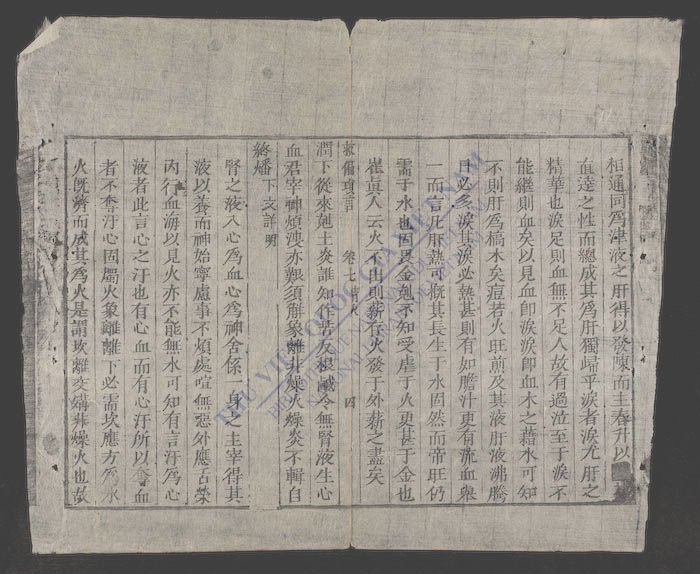 相通同爲津液之肝得以發陳而主春升以
直達之性而總成其爲肝獨歸乎淚者淚尤肝之
精華也淚足則血無不足人故有過泣至于淚不
能繼則血矣以見血卽淚淚卽血木之藉水可知
不則肝爲槁木矣痘若火旺煎及其液肝液沸騰
目必多淚其淚必熱甚則有如膽汁更有流血與
一而言几肝熱可概其長生于水固然而帝旺仍
需于水也固畏金剋不知受虐于火更甚于金也
崔眞人云火不出則薪存火發于外薪之盡矣
救偏瑣言 卷七 四
潤下從來剋土炎誰知作苦反根鹹令無腎液生心
血君宰神煩溲亦艱須解象離非燥火燥炎不輯自
終燔 下文詳明
腎之液入心爲血心爲神舍係一身之主宰得其
液以養而神始寧慮事不煩處喧無惡外應舌榮
內行血海以見火亦不能無水可知有言汗爲心
液者此言心之汗也有心血而有心汗所以奪血
者不奪汗心固屬火象離離下必需坎應方爲水
火旣濟而成其爲火是謂坎離交媾非燥火也故
THƯ VIỆN QUỐC GIA VIỆT NAM